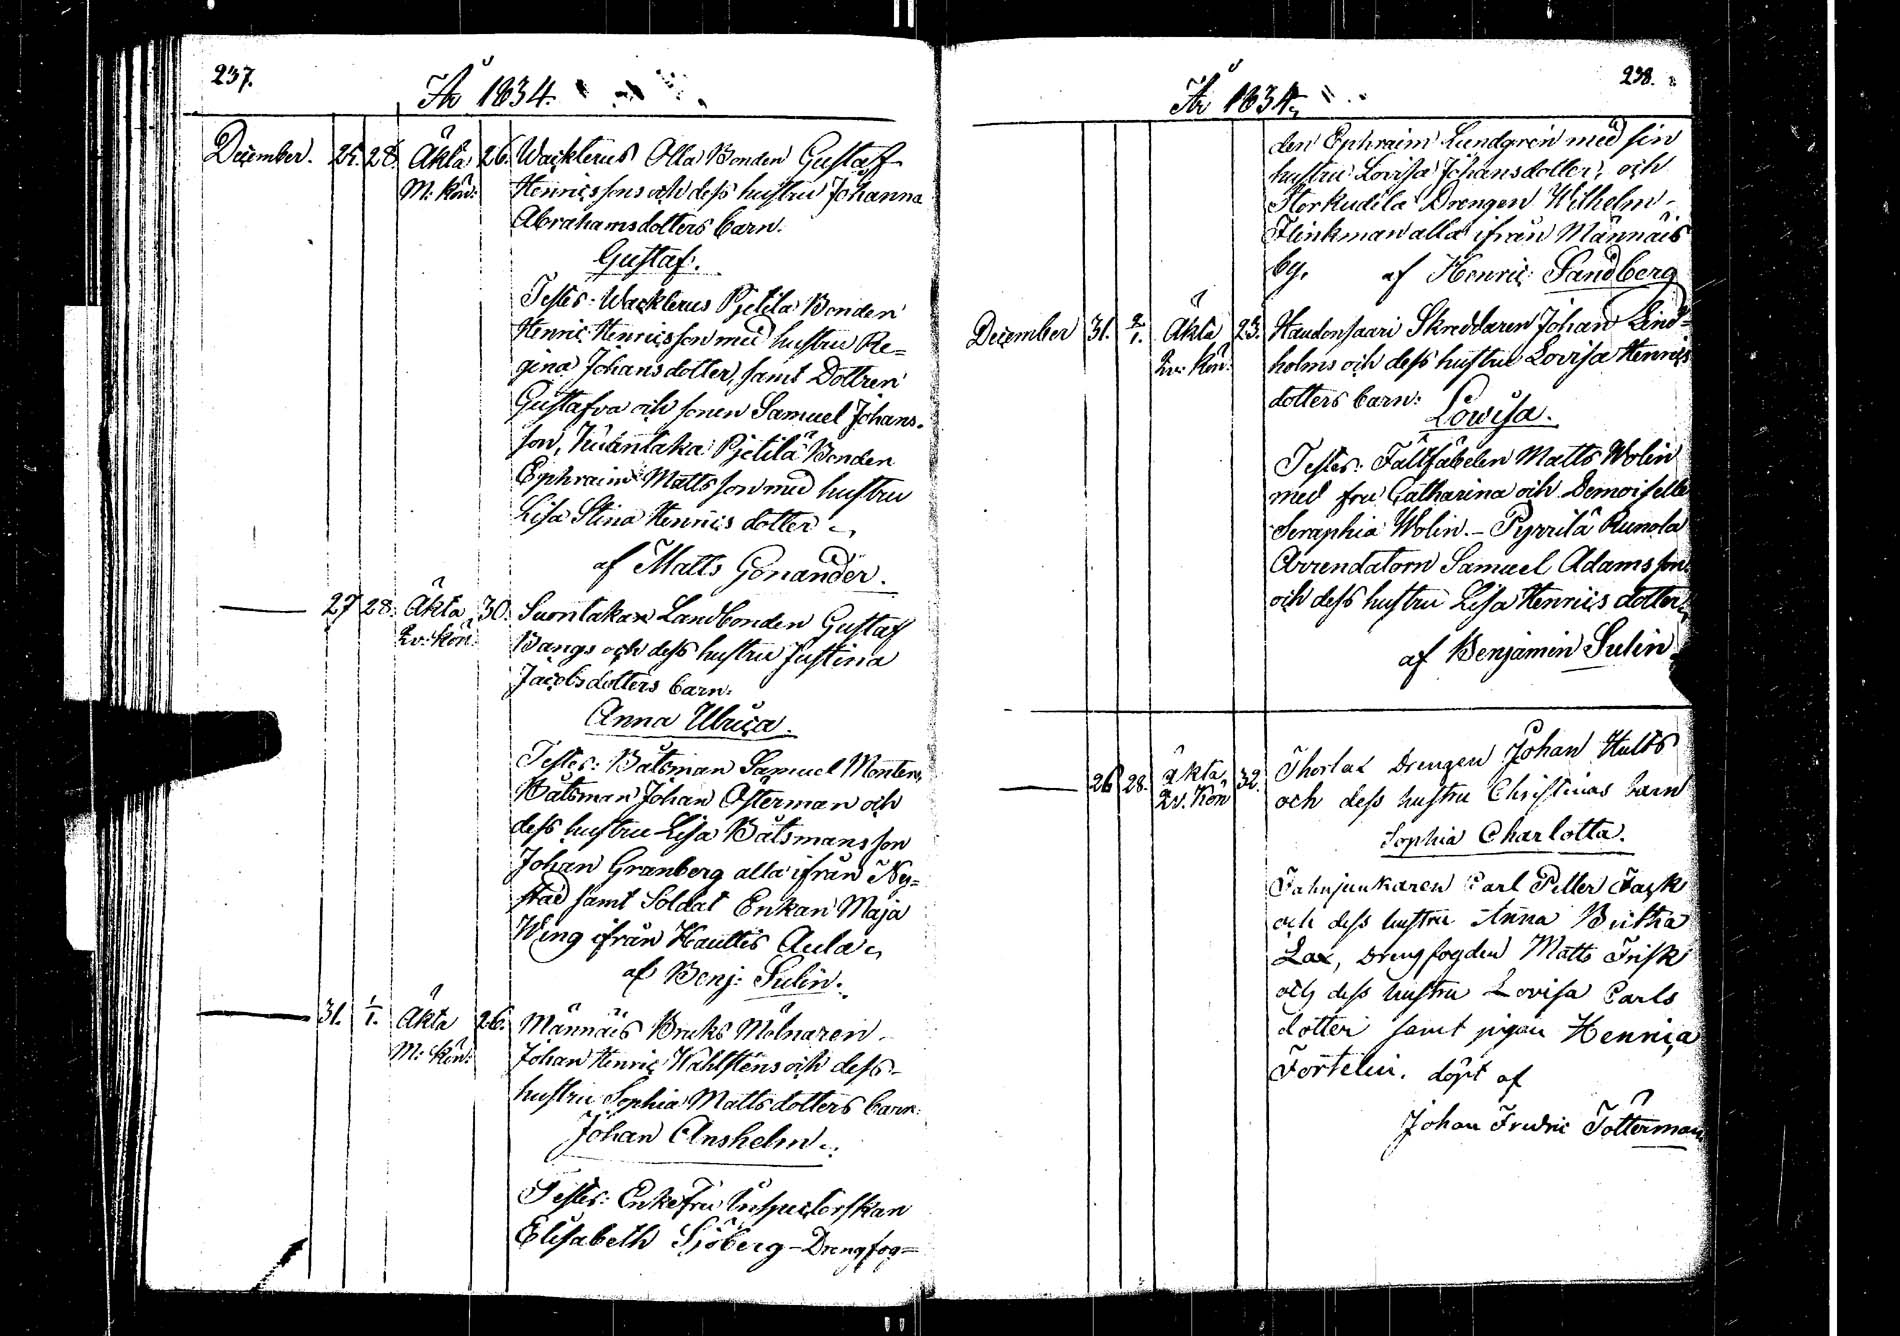 237.
År 1834.
December. 25. 28. Äkta 26. Wacklerus Olla Bonden Gustaf
M: Kön: Henricssons och dess hustru Johanna
Abrahamsdotters barn.
Gustaf.
Testes: Wacklerus Pjetilä Bonden
Henric Henricsson med hustru Re=
gina Johansdotter, samt Dottren
Gustafva och sonen Samuel Johans.
son, Pjetilä Bonden
Ephraim Mattsson med hustru
Lisa Stina Henricsdotter
af Matts Gönander.
27 28. Äkta 30. Suontaka Landbonden Gustaf
Qv: Kön: Bangs och dess hustru Justina
Jacobsdotters barn:
Anna Ulrica.
Testes: Båtsman Samuel Monten,
Båtsman Johan Österman och
dess hustru Lisa Båtsmansson
Johan Granberg alla ifrån Ny=
stad samt Soldat Enkan Maja
Wing ifrån Haultis Aula
af Benj: Sulin.
31. 1/1. Äkta 26. Männäis Bruks Mölnaren
M: Kön: Johan Henric Wahlstens och dess
hustru Sophia Mattsdotters barn:
Johan Anshelm.
Testes: Enkefru Inspectorskan
Elisabeth Sjöberg - Drengfog=
238.
År 1834.
den Ephraim Lundgren med sin
hustru Lovisa Johansdotter, och
Storkudila Drengen Wilhelm
Flinkman alla ifrån Männäis
by. af Henric Sandberg
December 31. 2/1. Äkta 23. Haudonsaari Skreddaren Johan Lind=
Qv: Kön: holms och dess hustru Lovisa Henrics
dotters barn:
Lowisa.
Testes: Fältfäbelen Matts Wolin
med fru Catharina och Demoiselle
Seraphia Wolin. - Pyrrilä Runola
Arrendatorn Samuel Adamsson
och dess hustru Lisa Henricsdotter
af Benjamin Sulin.
26 28. äkta 32. Thorlax Drengen Johan Hults
Qv. Kön och dess hustru Christinas barn
Sophia Charlotta.
Fahnjunkaren Carl Petter Fack
och dess hustru Anna Britha
Lax, Drengfogden Matts Frisk
och dess hustru Lovisa Carls
dotter samt pigan Hennica
Fortelin. döpt af
Johan Fredric Totterman